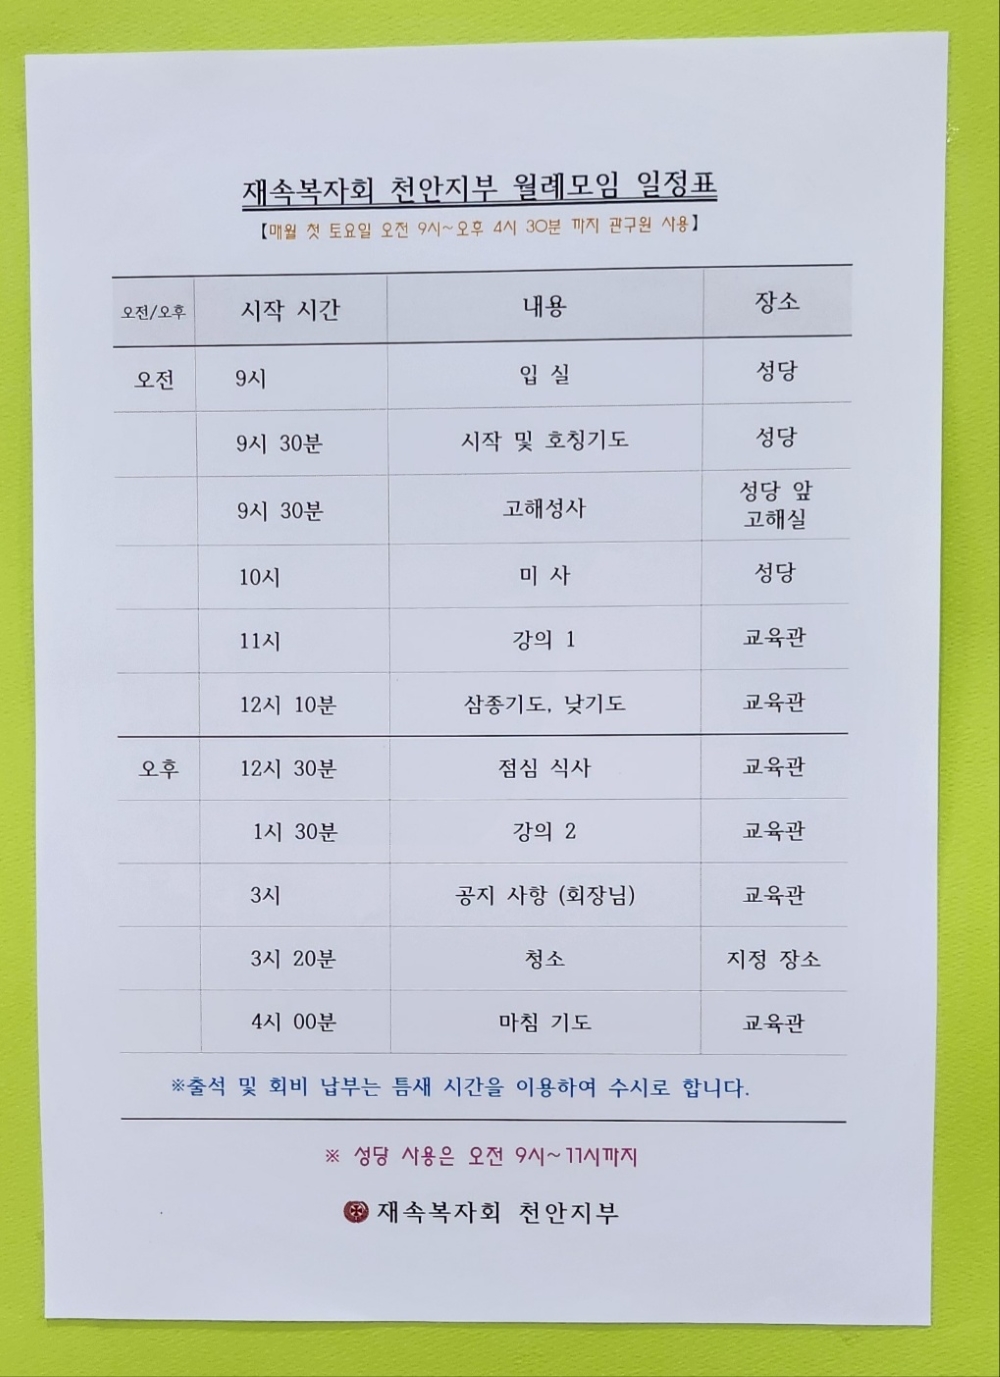 재속복자회 천안지부 월례모임 일정표
【매월 첫 토요일 오전 9시~오후 4시 30분 까지 관구원 사용】
오전/오후 시작 시간 내용 장소
오전 9시 입 실 성당
9시 30분 시작 및 호칭기도 성당
9시 30분 고해성사 성당 앞
고해실
10시 미 사 성당
11시 강의 1 교육관
12시 10분 삼종기도, 낮기도 교육관
오후 12시 30분 점심 식사 교육관
1시 30분 강의 2 교육관
3시 공지 사항 (회장님) 교육관
3시 20분 청소 지정 장소
4시 00분 마침 기도 교육관
※출석 및 회비 납부는 틈새 시간을 이용하여 수시로 합니다.
※ 성당 사용은 오전 9시~11시까지
재속복자회 천안지부